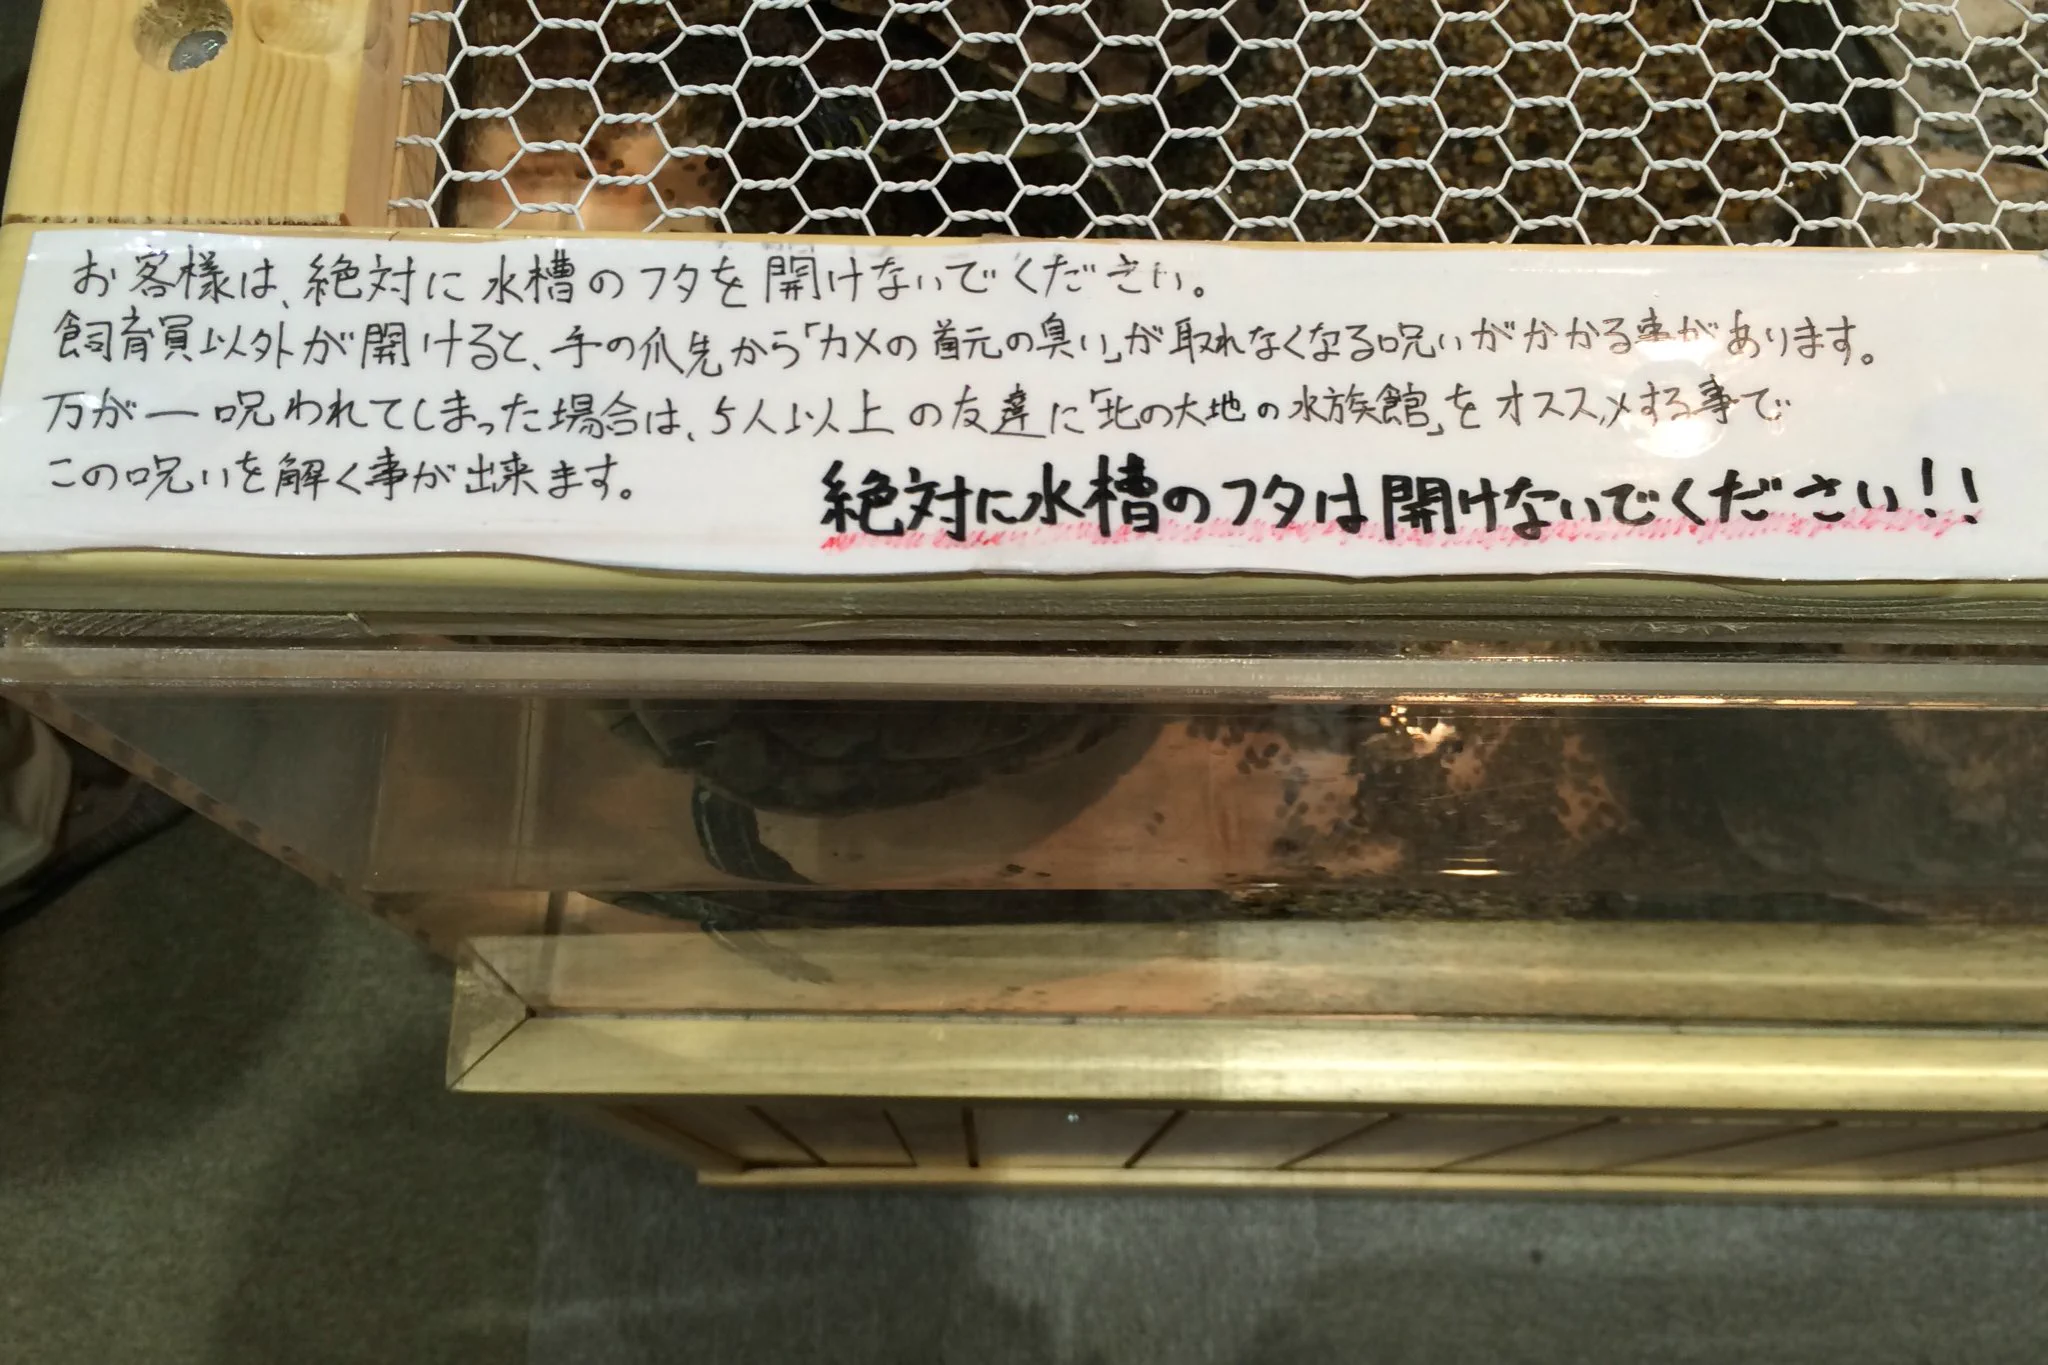 お客様は、絶対に水槽のフタを開けないでください。
飼育員以外が開けると、手の爪先から「カメの首元の臭い」が取れなくなる呪いがかかる事があります。
万が一呪われてしまった場合は、5人以上の友達に「北の大地の水族館」をオススメする事で
この呪いを解く事が出来ます。
絶対に水槽のフタは開けないでください!!